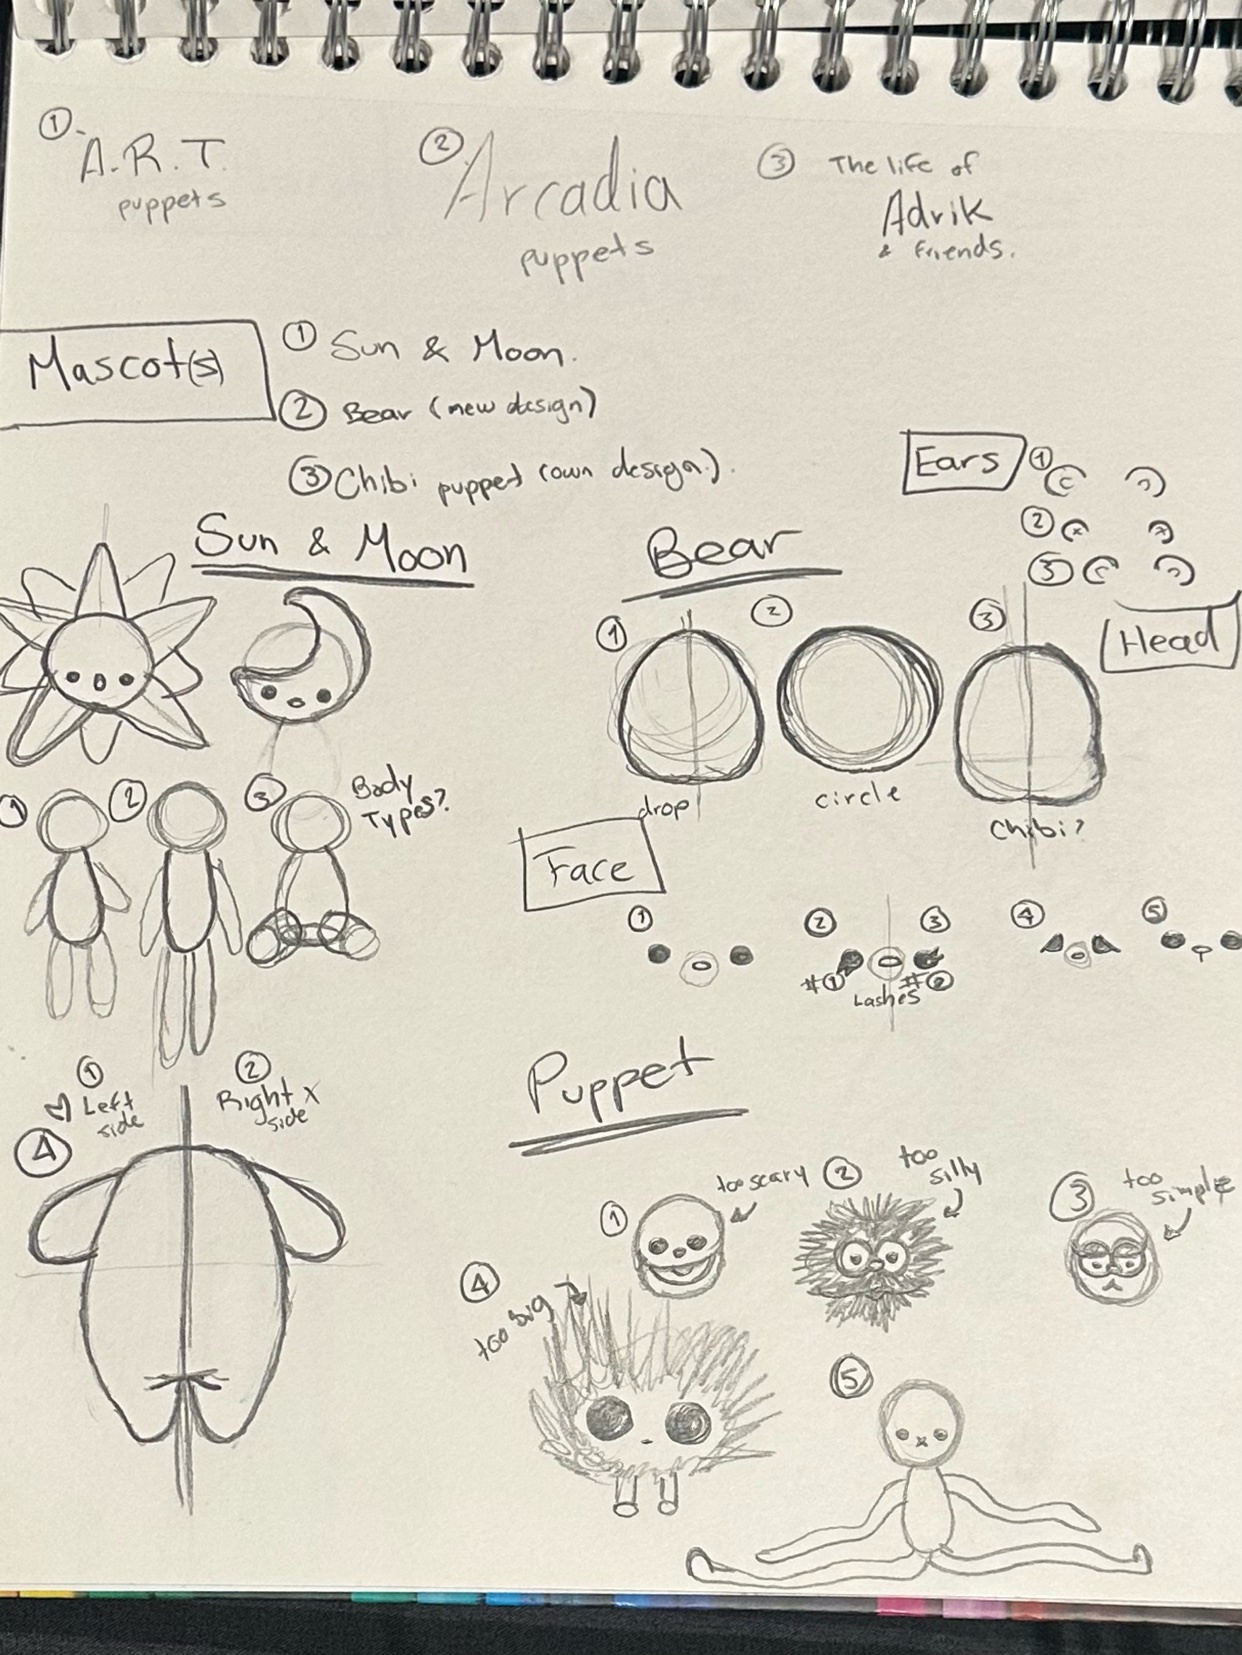 ① A.R.T.
puppets
② Arcadia
puppets
③ The life of
Adrik
& friends.
Mascot(s)
① Sun & Moon.
② Bear (new design)
③ Chibi puppet (own design).
Sun & Moon
① ② ③ Body
Types?
① ♡ Left
side
② Right x
side
④
Bear
Ears
①
②
③
Head
① ② ③
drop
circle
Chibi?
Face
① ② ③ ④ ⑤
#① #②
Lashes
Puppet
① too scary
② too
silly
③ too
simple
④ too big
⑤